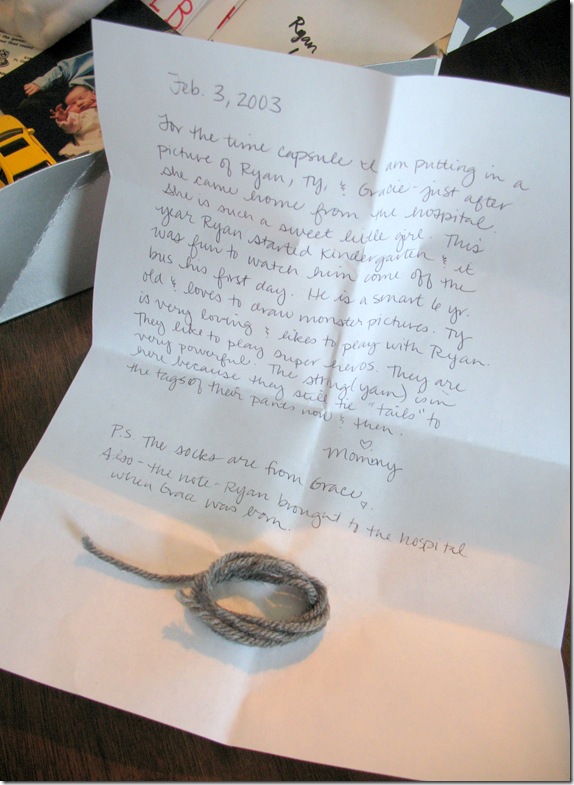 Ryan
Feb. 3, 2003
For the time capsule I am putting in a
picture of Ryan, Ty, & Gracie - just after
she came home from the hospital.
She is such a sweet little girl. This
year Ryan started Kindergarten & it
was fun to watch him come off the
bus his first day. He is a smart 6 yr.
old & loves to draw monster pictures. Ty
is very loving & likes to play with Ryan.
They like to play super heros. They are
very powerful. The string (yarn) is in
here because they still tie "tails" to
the tags of their pants now & then.
♡
Mommy
P.S. The socks are from Grace &
Also - the note - Ryan brought to the hospital
when Grace was born.